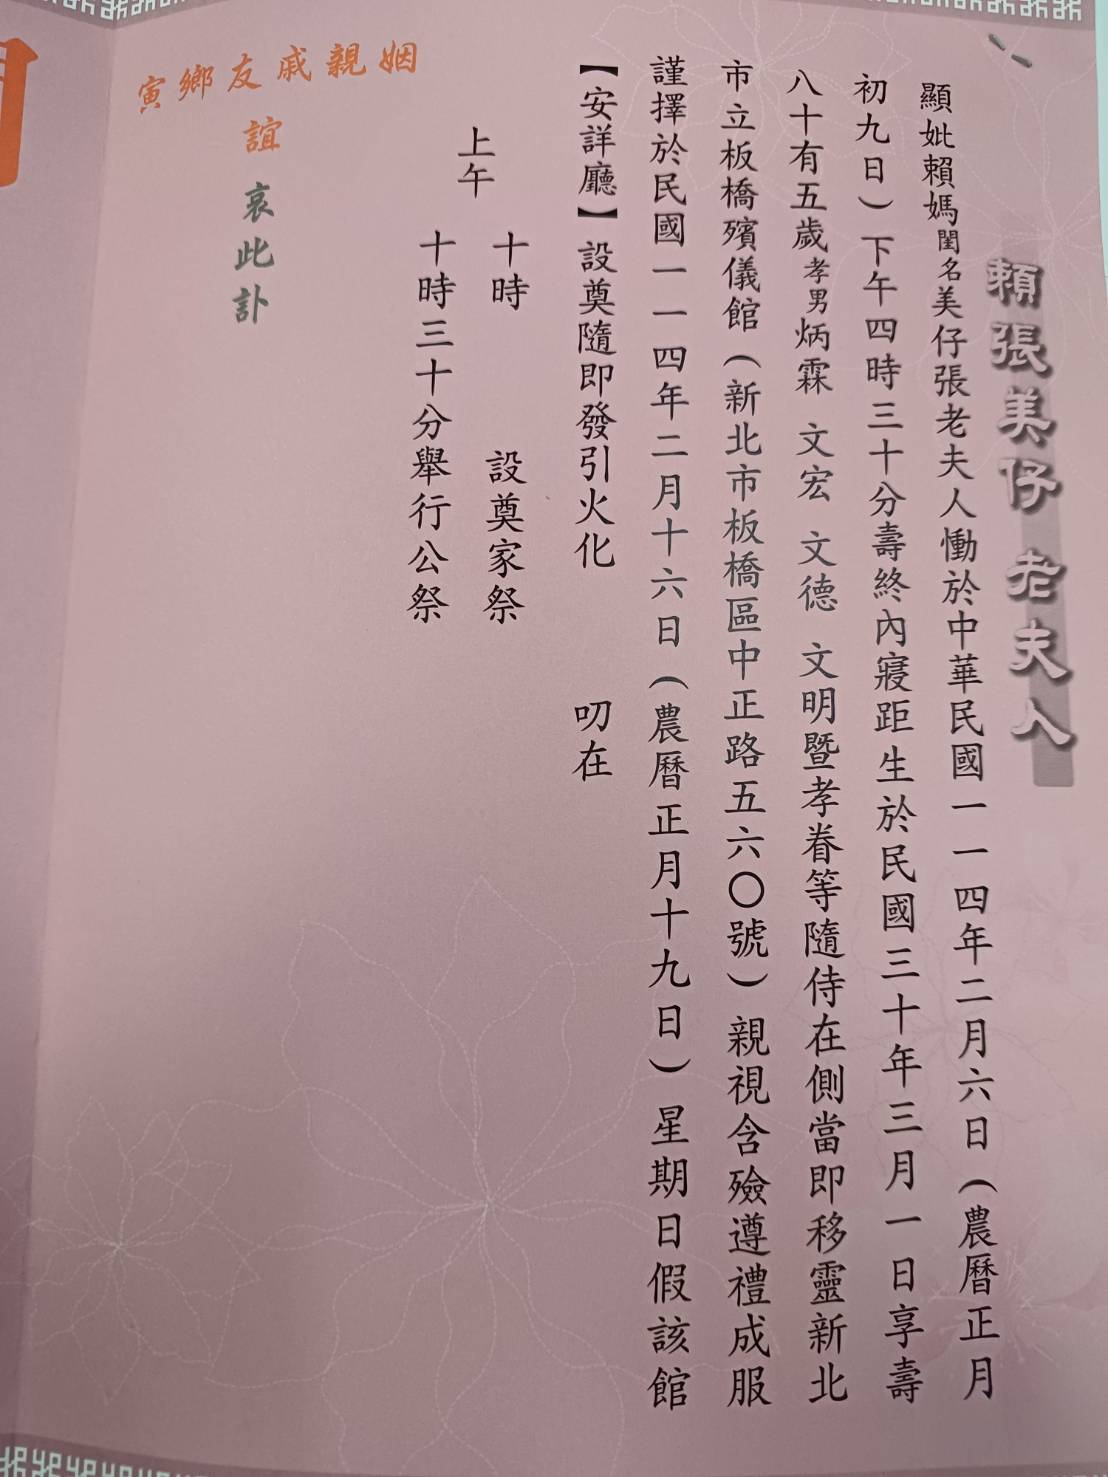 賴張美仔 老夫人
顯妣賴媽閨名美仔張老夫人慟於中華民國一一四年二月六日(農曆正月
初九日)下午四時三十分壽終內寢距生於民國三十年三月一日享壽
八十有五歲孝男炳霖 文宏 文德 文明暨孝眷等隨侍在側當即移靈新北
市立板橋殯儀館(新北市板橋區中正路五六〇號)親視含殮遵禮成服
謹擇於民國一一四年二月十六日(農曆正月十九日)星期日假該館
【安詳廳】設奠隨即發引火化 叨在
上午
十時 設奠家祭
十時三十分舉行公祭
姻親戚友鄉寅
誼 哀此訃